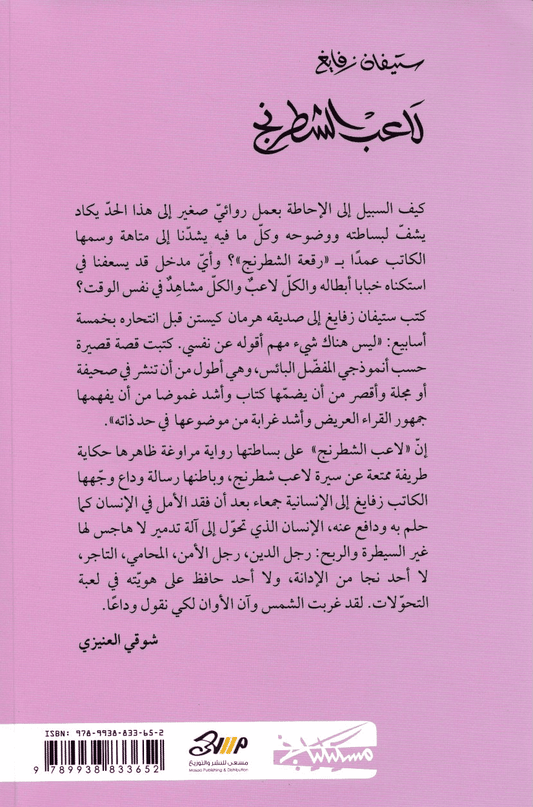 ستيفان زفايغ
لاعب الشطرنج
كيف السبيل إلى الإحاطة بعمل روائيّ صغير إلى هذا الحدّ يكاد
يشفّ لبساطته ووضوحه وكلّ ما فيه يشدّنا إلى متاهة وسمها
الكاتب عمدًا بـ «رقعة الشطرنج»؟ وأيّ مدخل قد يسعفنا في
استكناه خبايا أبطاله والكلّ لاعبٌ والكلّ مشاهِدٌ في نفس الوقت؟
كتب ستيفان زفايغ إلى صديقه هرمان كيستن قبل انتحاره بخمسة
أسابيع: «ليس هناك شيء مهم أقوله عن نفسي. كتبت قصة قصيرة
حسب أنموذجي المفضّل البائس، وهي أطول من أن تنشر في صحيفة
أو مجلة وأقصر من أن يضمّها كتاب وأشد غموضا من أن يفهمها
جمهور القراء العريض وأشد غرابة من موضوعها في حد ذاته».
إنّ «لاعب الشطرنج» على بساطتها رواية مراوغة ظاهرها حكاية
طريفة ممتعة عن سيرة لاعب شطرنج، وباطنها رسالة وداع وجّهها
الكاتب زفايغ إلى الإنسانية جمعاء بعد أن فقد الأمل في الإنسان كما
حلم به ودافع عنه، الإنسان الذي تحوّل إلى آلة تدمير لا هاجس لها
غير السيطرة والربح: رجل الدين، رجل الأمن، المحامي، التاجر،
لا أحد نجا من الإدانة، ولا أحد حافظ على هويّته في لعبة
التحوّلات. لقد غربت الشمس وآن الأوان لكي نقول وداعًا.
شوقي العنيزي
ISBN: 978-9938-833-65-2
9 789938 833652
مسعى
مسعى للنشر والتوزيع
Masaa Publishing & Distribution
مسكيلياني